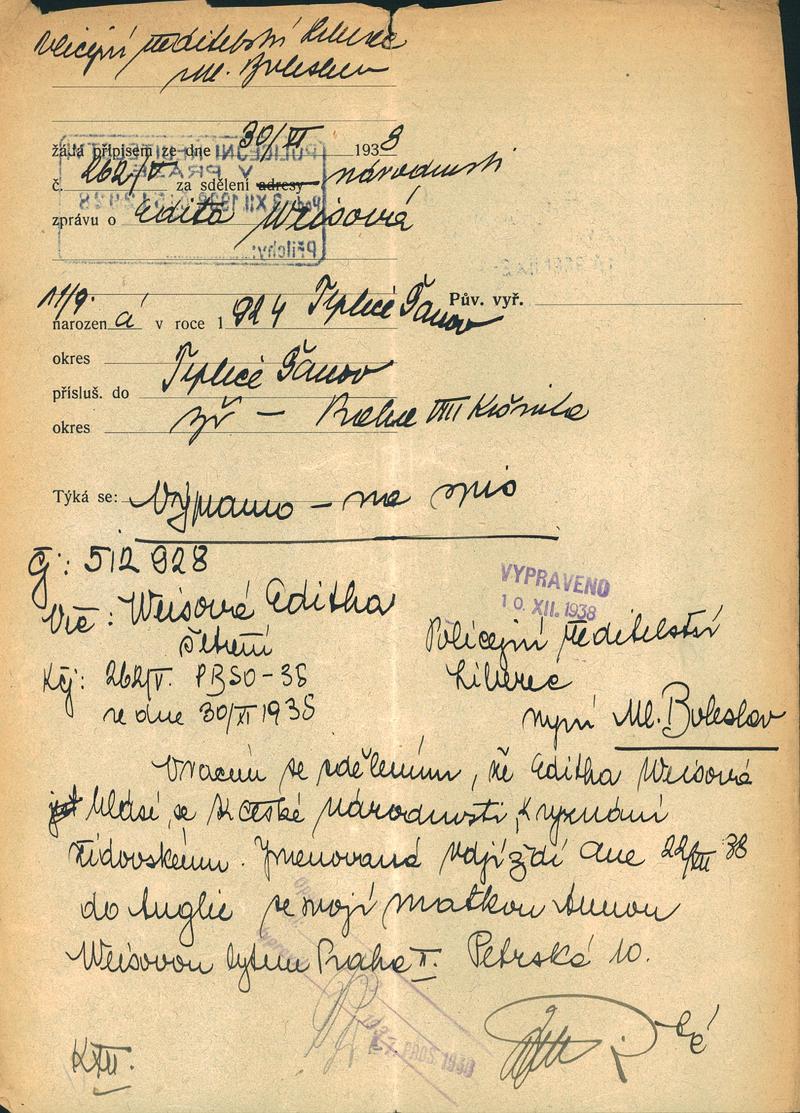 Policejní ředitelství Liberec
Ml. Boleslav
žádá přípisem ze dne 30/XI 1938
č. 262/V za sdělení adresy národnosti
zprávu o Edita Weisová
POLICEJNÍ ŘEDITELSTVÍ
V PRAZE
XII. 1938
Přílohy:
11/9.
narozená v roce 1924 Teplice Šanov Pův. vyř.
okres
přísluš. do Teplice Šanov
okres Praha VIII
Týká se: Vypsáno – na spis
Čj: 512928
Věc: Weisová Editha
šetření
Kčj: 262/V. PBSO-38
ze dne 30/XI 1938
VYPRAVENO
10. XII. 1938
Policejní ředitelství
Liberec
nyní Ml. Boleslav
Vracím se sdělením, že Editha Weisová
hlásí se k české národnosti, k vyznání
židovskému. Jmenovaná odjíždí dne 22/XII 38
do Anglie se svojí matkou Annou
Weisovou bytem Praha II. Petrská 10.
27. PROS. 1938